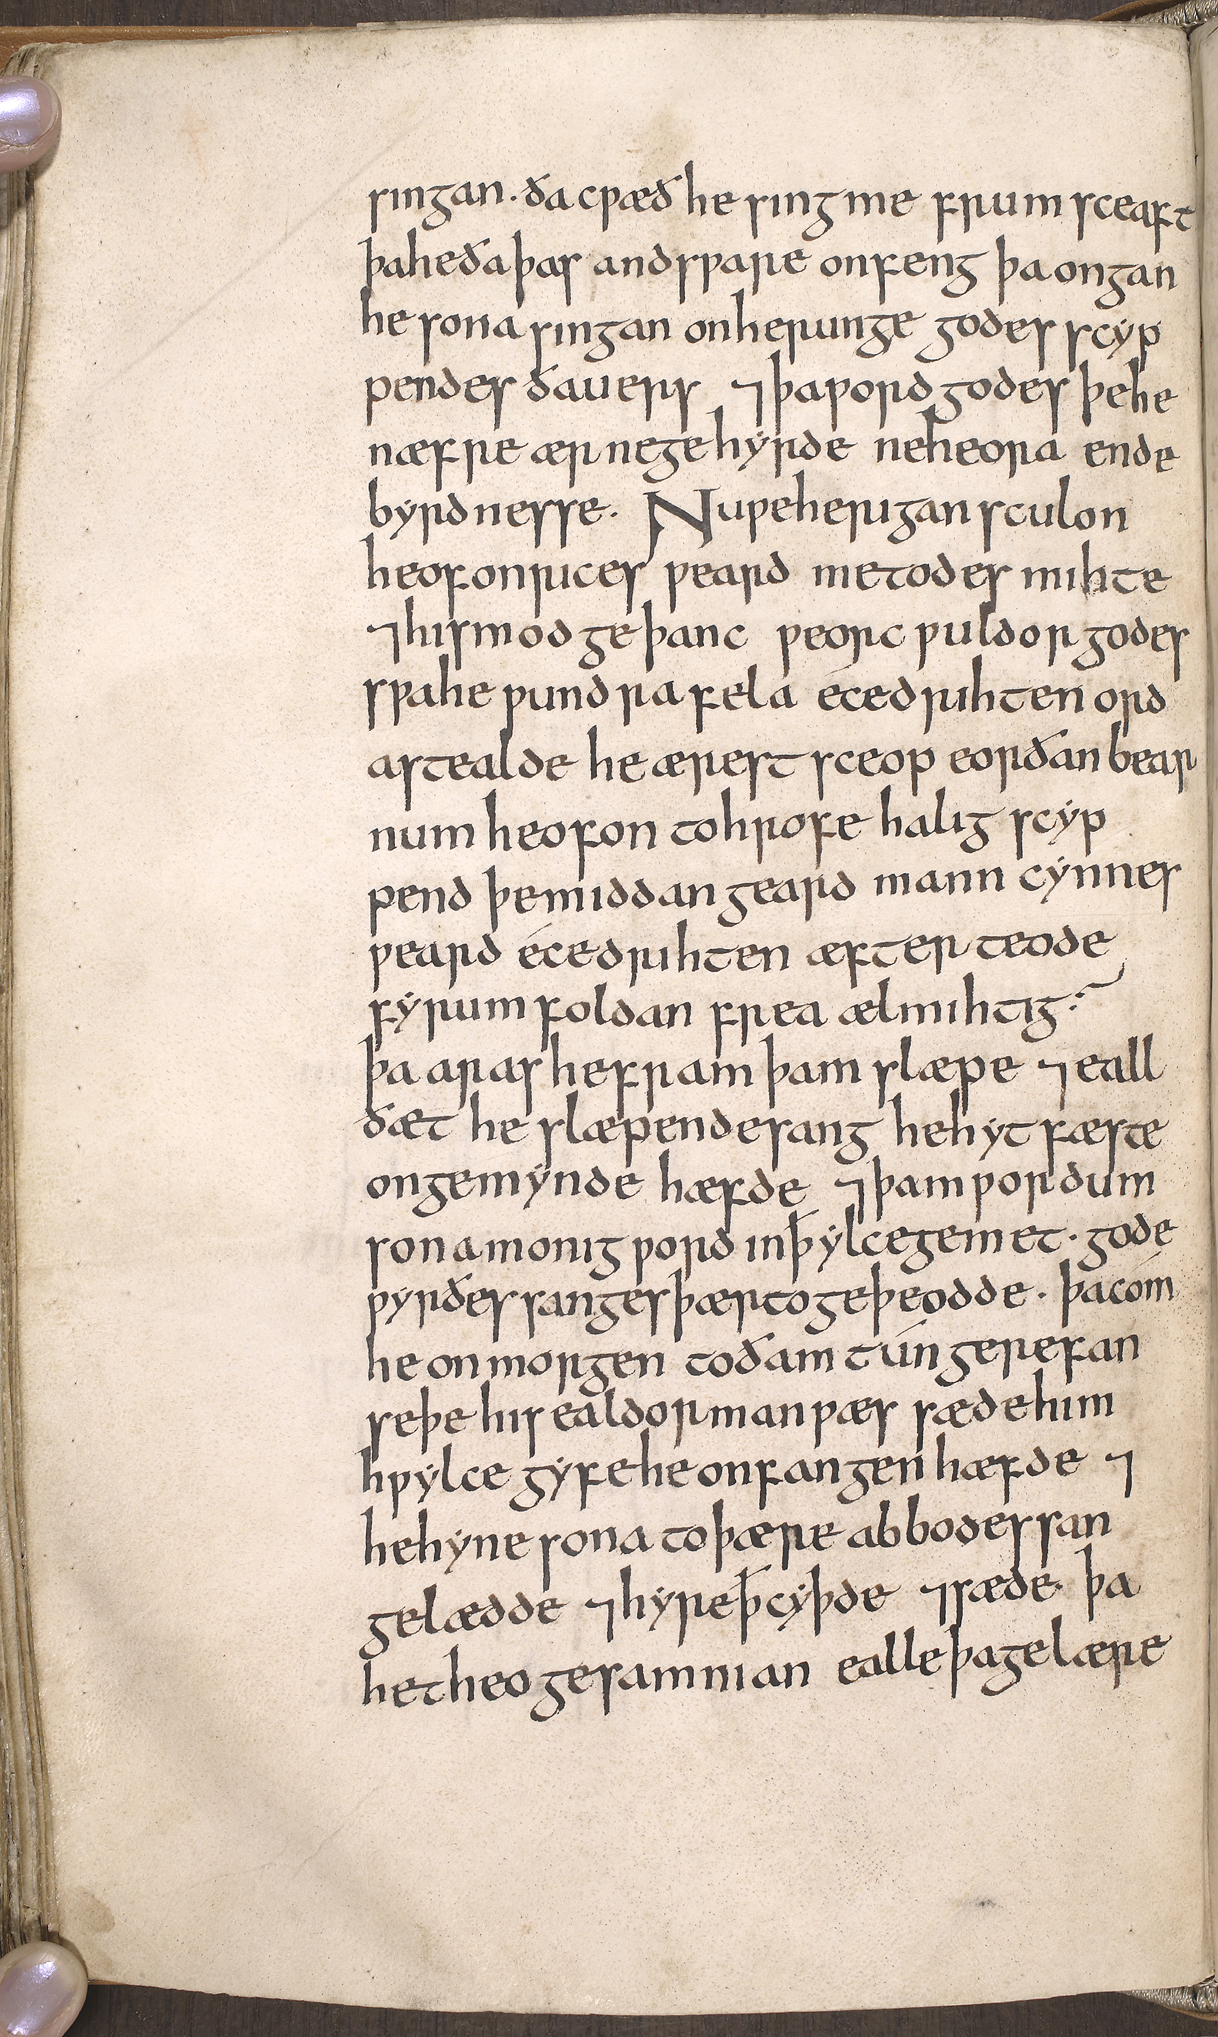 singan. ða cƿæð he sing me frumsceaft
þa he ða þas andsƿare onfeng þa ongan
he sona singan on herunge godes scyp
pendes ða uers ⁊ þa ƿord godes þe he
næfre ær ne gehyrde ne heora ende
byrdnesse. Nu ƿe herigan sculon
heofonrices ƿeard metodes mihte
⁊ his modgeþanc ƿeorc ƿuldorgodes
sƿa he ƿundra fela éce drihten ord
astealde he ærest sceop eorðan bear
num heofon to hrofe halig scyp
pend þe middangeard manncynnes
ƿeard éce drihten æfter teode
fyrum foldan frea ælmihtig.
þa aras he fram þam slæpe ⁊ eall
ðæt he slæpende sang he hyt fæste
on gemynde hæfde ⁊ þam ƿordum
sona monig ƿord in ꝥ ylce gemet. gode
ƿyrðes sanges þær to geþeodde. þa cóm
he on morgen to ðam túngerefan
se þe his ealdorman ƿæs sæde him
hƿylce gyfe he onfangen hæfde ⁊
he hyne sona to þære abbodessan
gelædde ⁊ hyre ꝥ cyþde ⁊ sæde. þa
het heo gesamnian ealle þa gelære